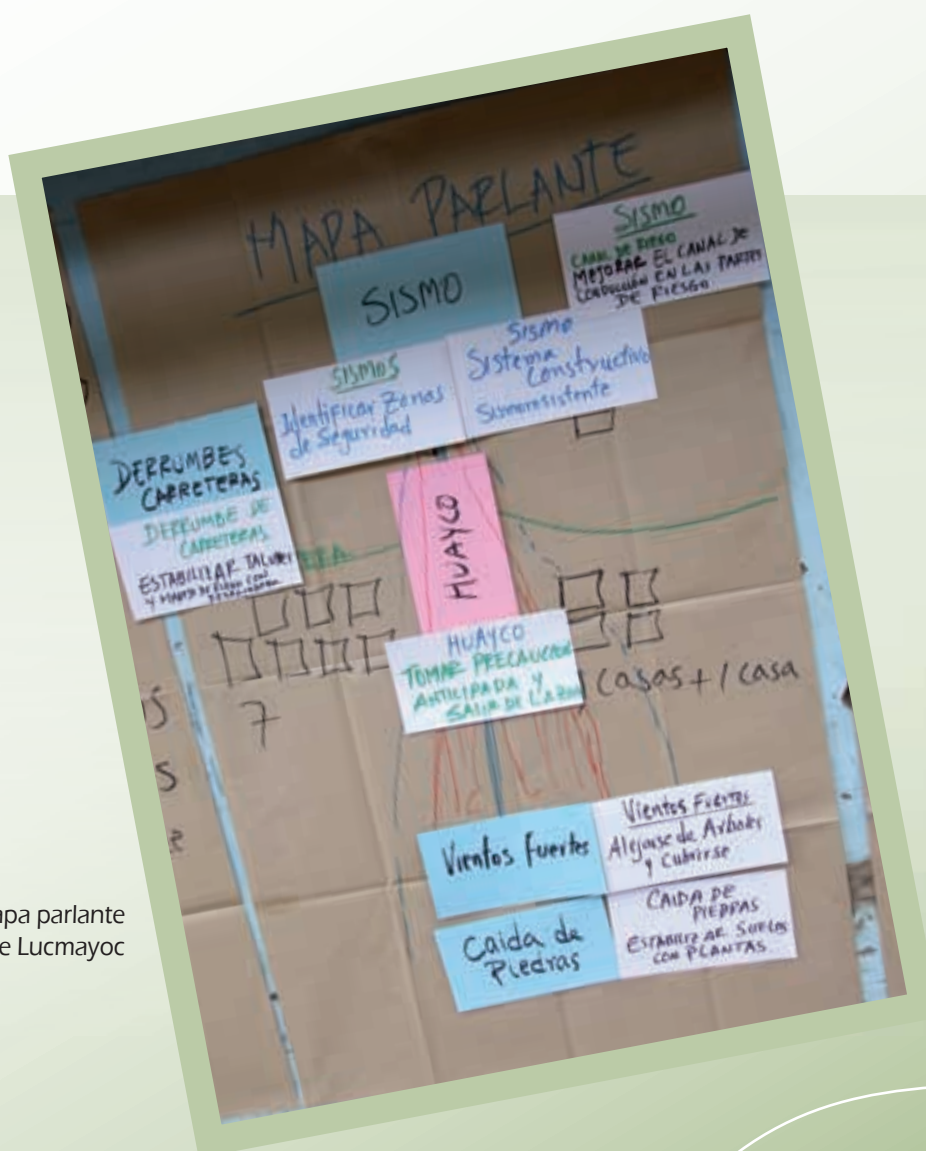 MAPA PARLANTE
SISMO
SISMO
CANAL DE RIEGO
MEJORAR EL CANAL DE
CONDUCCIÓN EN LAS PARTES
DE RIESGO
SISMOS
Identificar Zonas
de Seguridad
SISMO
Sistema
Constructivo
Sismoresistente
DERRUMBES
CARRETERAS
DERRUMBE DE
CARRETERAS
ESTABILIZAR TALUDES
HUAYCO
HUAYCO
TOMAR PRECAUCION
ANTICIPADA Y
SALIR DE LA
7
casas + 1 casa
Vientos Fuertes
Vientos Fuertes
Alejarse de Arboles
y Cubrirse
Caida de
Piedras
CAIDA DE
PIEDRAS
ESTABILIZAR SUELOS
CON PLANTAS
apa parlante
e Lucmayoc